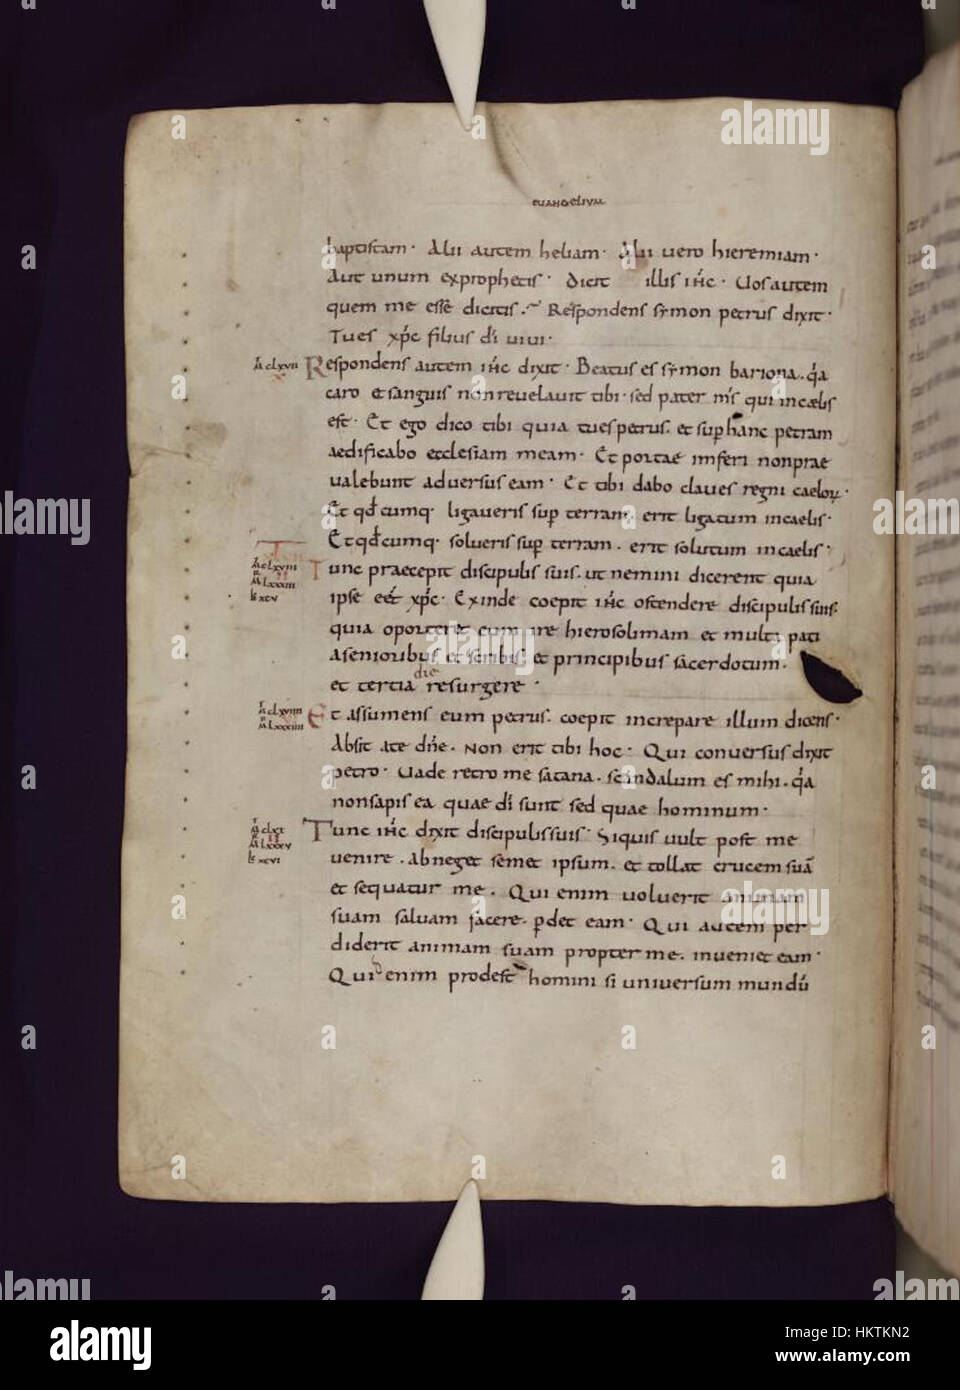 EVANGELIUM
baptistam · Alii autem heliam · Alii vero hieremiam ·
Aut unum exprophetis · Dicit illis ihc · Vos autem
quem me esse dicitis · Respondens symon petrus dixit ·
Tues xpc filius di vivi ·
Respondens autem ihc dixit · Beatus es symon bariona · qa
caro et sanguis nonrevelavit tibi · sed pater ms qui incaelis
est · Et ego dico tibi quia tuespetrus · et sup hanc petram
aedificabo ecclesiam meam · Et portae inferi nonprae
valebunt adversus eam · Et tibi dabo claves regni caeloꝝ ·
Et qd cumq · ligaveris sup terram · erit ligatum incaelis ·
Et qd cumq · solveris sup terram · erit solutum incaelis ·
M CLXVIII
M LXXXIII
Tunc praecepit discipulis suis · ut nemini dicerent quia
L XCV
ipse eet xpc · Exinde coepit ihc ostendere discipulis suis ·
quia oporteret eum ire hierosolimam et multa pati
asenioribus et scribis et principibus sacerdotum ·
et tertia die resurgere ·
Et assumens eum petrus · coepit increpare illum dicens ·
Absit ate dne · Non erit tibi hoc · Qui conversus dixit
petro · Vade retro me satana · scandalum es mihi · qa
nonsapis ea quae di sunt sed quae hominum ·
M CLXX
M LXXXV
Tunc ihc dixit discipulissuis · Siquis vult post me
L XCVI
venire · abneget semet ipsum · et tollat crucem suā
et sequatur me · Qui enim voluerit animam
suam salvam facere · pdet eam · Qui autem per
diderit animam suam propter me · inveniet eam ·
Quid enim prodest homini si universum mundū
alamy
HKTKN2
www.alamy.com